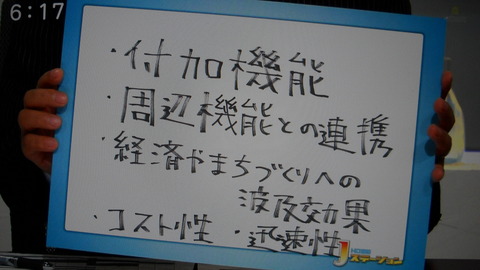 6:17
・付加機能
・周辺機能との連携
・経済やまちづくりへの
波及効果
・コスト性 ・迅速性
Jステーション